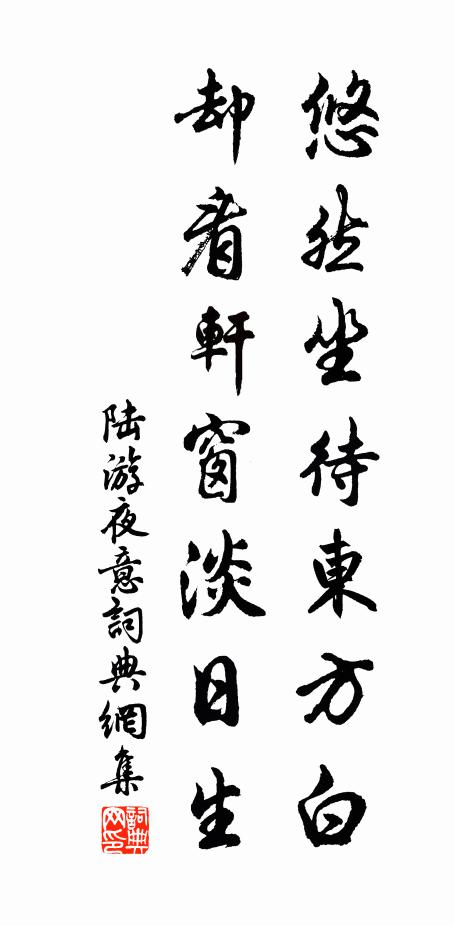 悠然坐待東方白
却看軒窗淡日生
陆游夜意詞典網集
詞典
网印